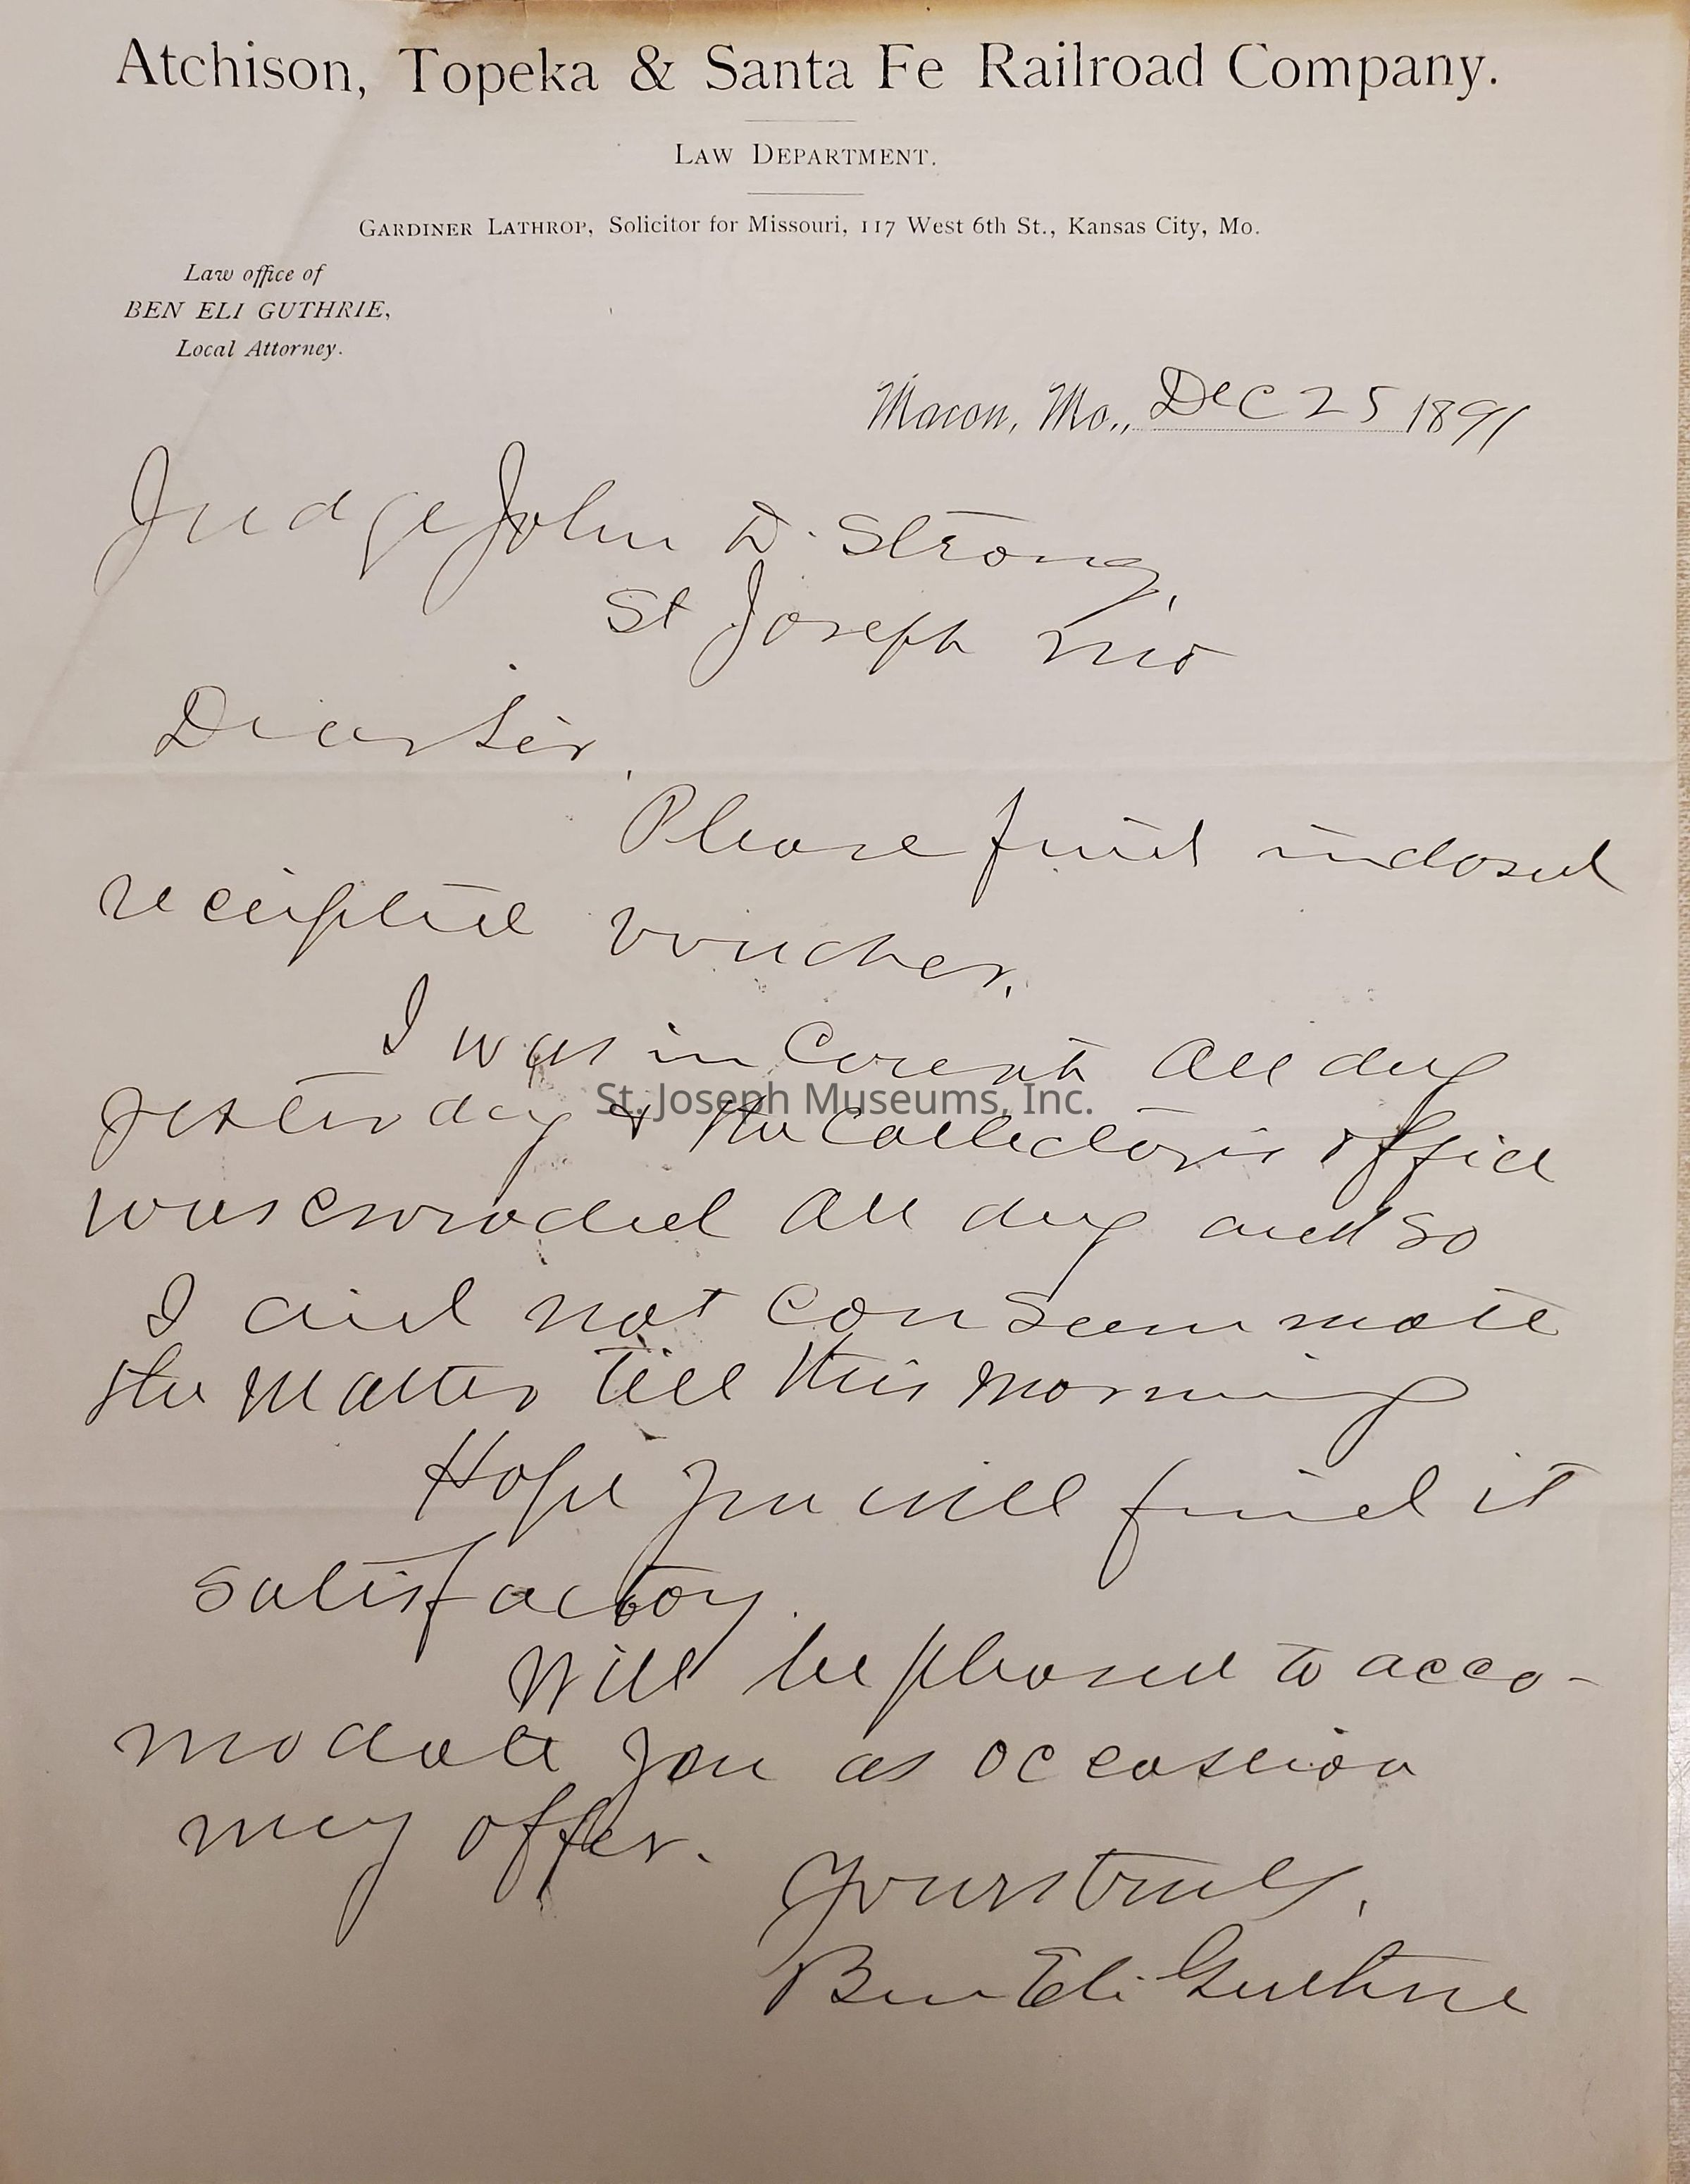 Atchison, Topeka & Santa Fe Railroad Company.
LAW DEPARTMENT.
GARDINER LATHROP, Solicitor for Missouri, 117 West 6th St., Kansas City, Mo.
Law office of
BEN ELI GUTHRIE,
Local Attorney.
Macon, Mo., Dec 25 1891
Judge John D. Strong,
St Joseph Mo
Dear Sir,
Please find inclosed
receipted voucher.
I was in Court all day
yesterday & the Collectors office
was crowded all day and so
I did not consummate
the matter till this morning
Hope you will find it
satisfactory.
Will be pleased to acco-
modate you as occassion
may offer.
Yours truly,
Ben Eli Guthrie
St. Joseph Museums, Inc.